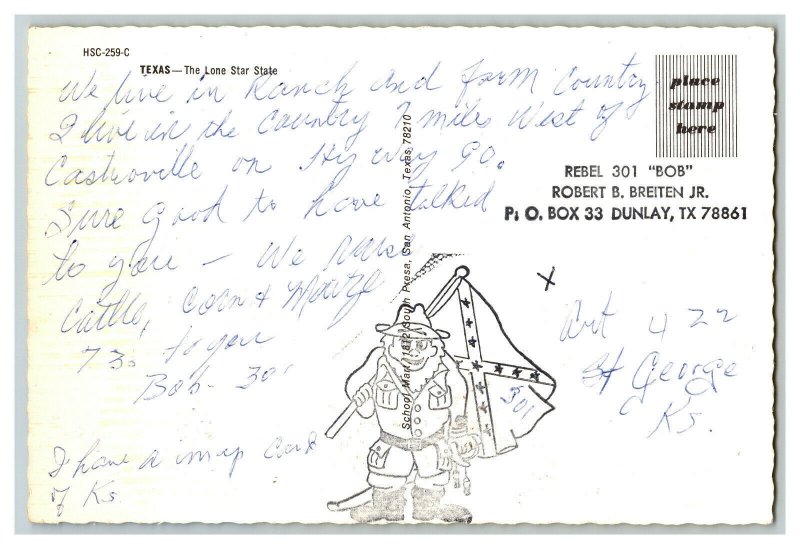 HSC-259-C
TEXAS—The Lone Star State
We live in Ranch and farm Country
I live in the Country 7 miles West of
Castroville on Hiy way 90.
Sure good to have talked
to you — We raise
Cattle, Corn &
73s to you
Bob - 301
I have a map card
of Ks
School Mart, 1812 South Presa, San Antonio, Texas 78210
place
stamp
here
REBEL 301 "BOB"
ROBERT B. BREITEN JR.
P. O. BOX 33 DUNLAY, TX 78861
X
Art 422
St George
Ks.
301